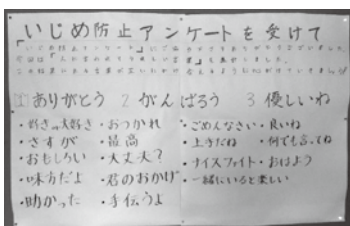 「いじめ防止アンケートを受けて
「いじめ防止アンケート」にご協力ありがとうございました。
1 ありがとう 2 がんばろう 3 優しいね
・好き・大好き ・おつかれ ・ごめんなさい ・良いね
・さすが ・最高 ・上手だね ・何でも言ってね
・おもしろい ・大丈夫? ・ナイスファイト ・おはよう
・味方だよ ・君のおかげ ・一緒にいると楽しい
・助かった ・手伝うよ